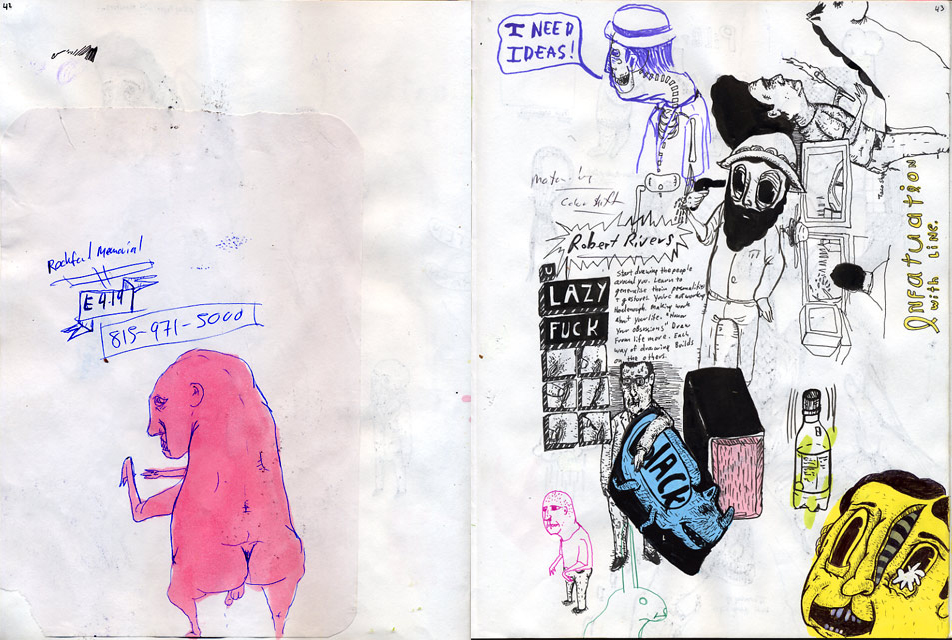 42
Rockford Memorial
E 4.14
815-971-5000
43
I NEED
IDEAS!
Color shift
Robert Rivers
U
LAZY
FUCK
Start drawing the people
around you. Learn to
generalize their personalities
+ gestures. You're not working
hard enough. Making work
about your life. "Honor
your obsessions" Draw
from life more. Each
way of drawing builds
on the others.
JACK
Infatuation
with line.